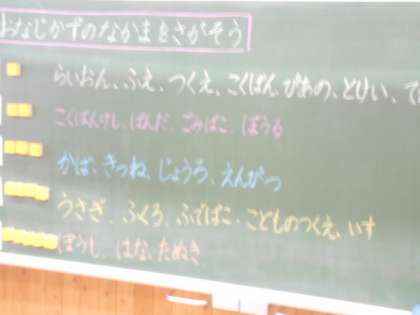 おなじかずのなかまをさがそう
らいおん、ふえ、つくえ、こくばん、ぴあの、とけい、て
こくばんけし、ぱんだ、ごみばこ、ぼうる
かば、きつね、じょうろ、えんぴつ
うさぎ、ふくろ、ふでばこ、こどものつくえ、いす
ぼうし、はな、たぬき